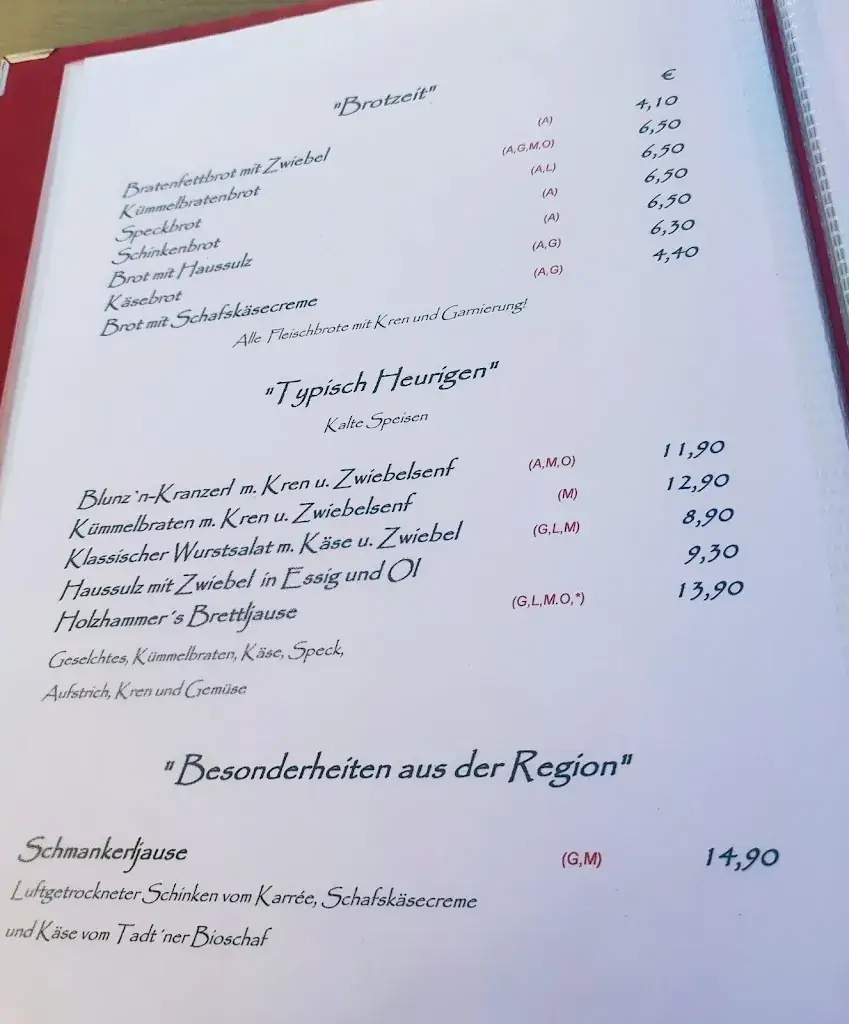 €
"Brotzeit"
Bratenfettbrot mit Zwiebel (A) 4,10
Kümmelbratenbrot (A,G,M,O) 6,50
Speckbrot (A,L) 6,50
Schinkenbrot (A) 6,50
Brot mit Haussulz (A) 6,50
Käsebrot (A,G) 6,30
Brot mit Schafskäsecreme (A,G) 4,40
Alle Fleischbrote mit Kren und Garnierung!
"Typisch Heurigen"
Kalte Speisen
Blunz´n-Kranzerl m. Kren u. Zwiebelsenf (A,M,O) 11,90
Kümmelbraten m. Kren u. Zwiebelsenf (M) 12,90
Klassischer Wurstsalat m. Käse u. Zwiebel (G,L,M) 8,90
Haussulz mit Zwiebel in Essig und Öl 9,30
Holzhammer´s Brettljause (G,L,M.O,*) 13,90
Geselchtes, Kümmelbraten, Käse, Speck,
Aufstrich, Kren und Gemüse
"Besonderheiten aus der Region"
Schmankerljause (G,M) 14,90
Luftgetrockneter Schinken vom Karrée, Schafskäsecreme
und Käse vom Tadt´ner Bioschaf